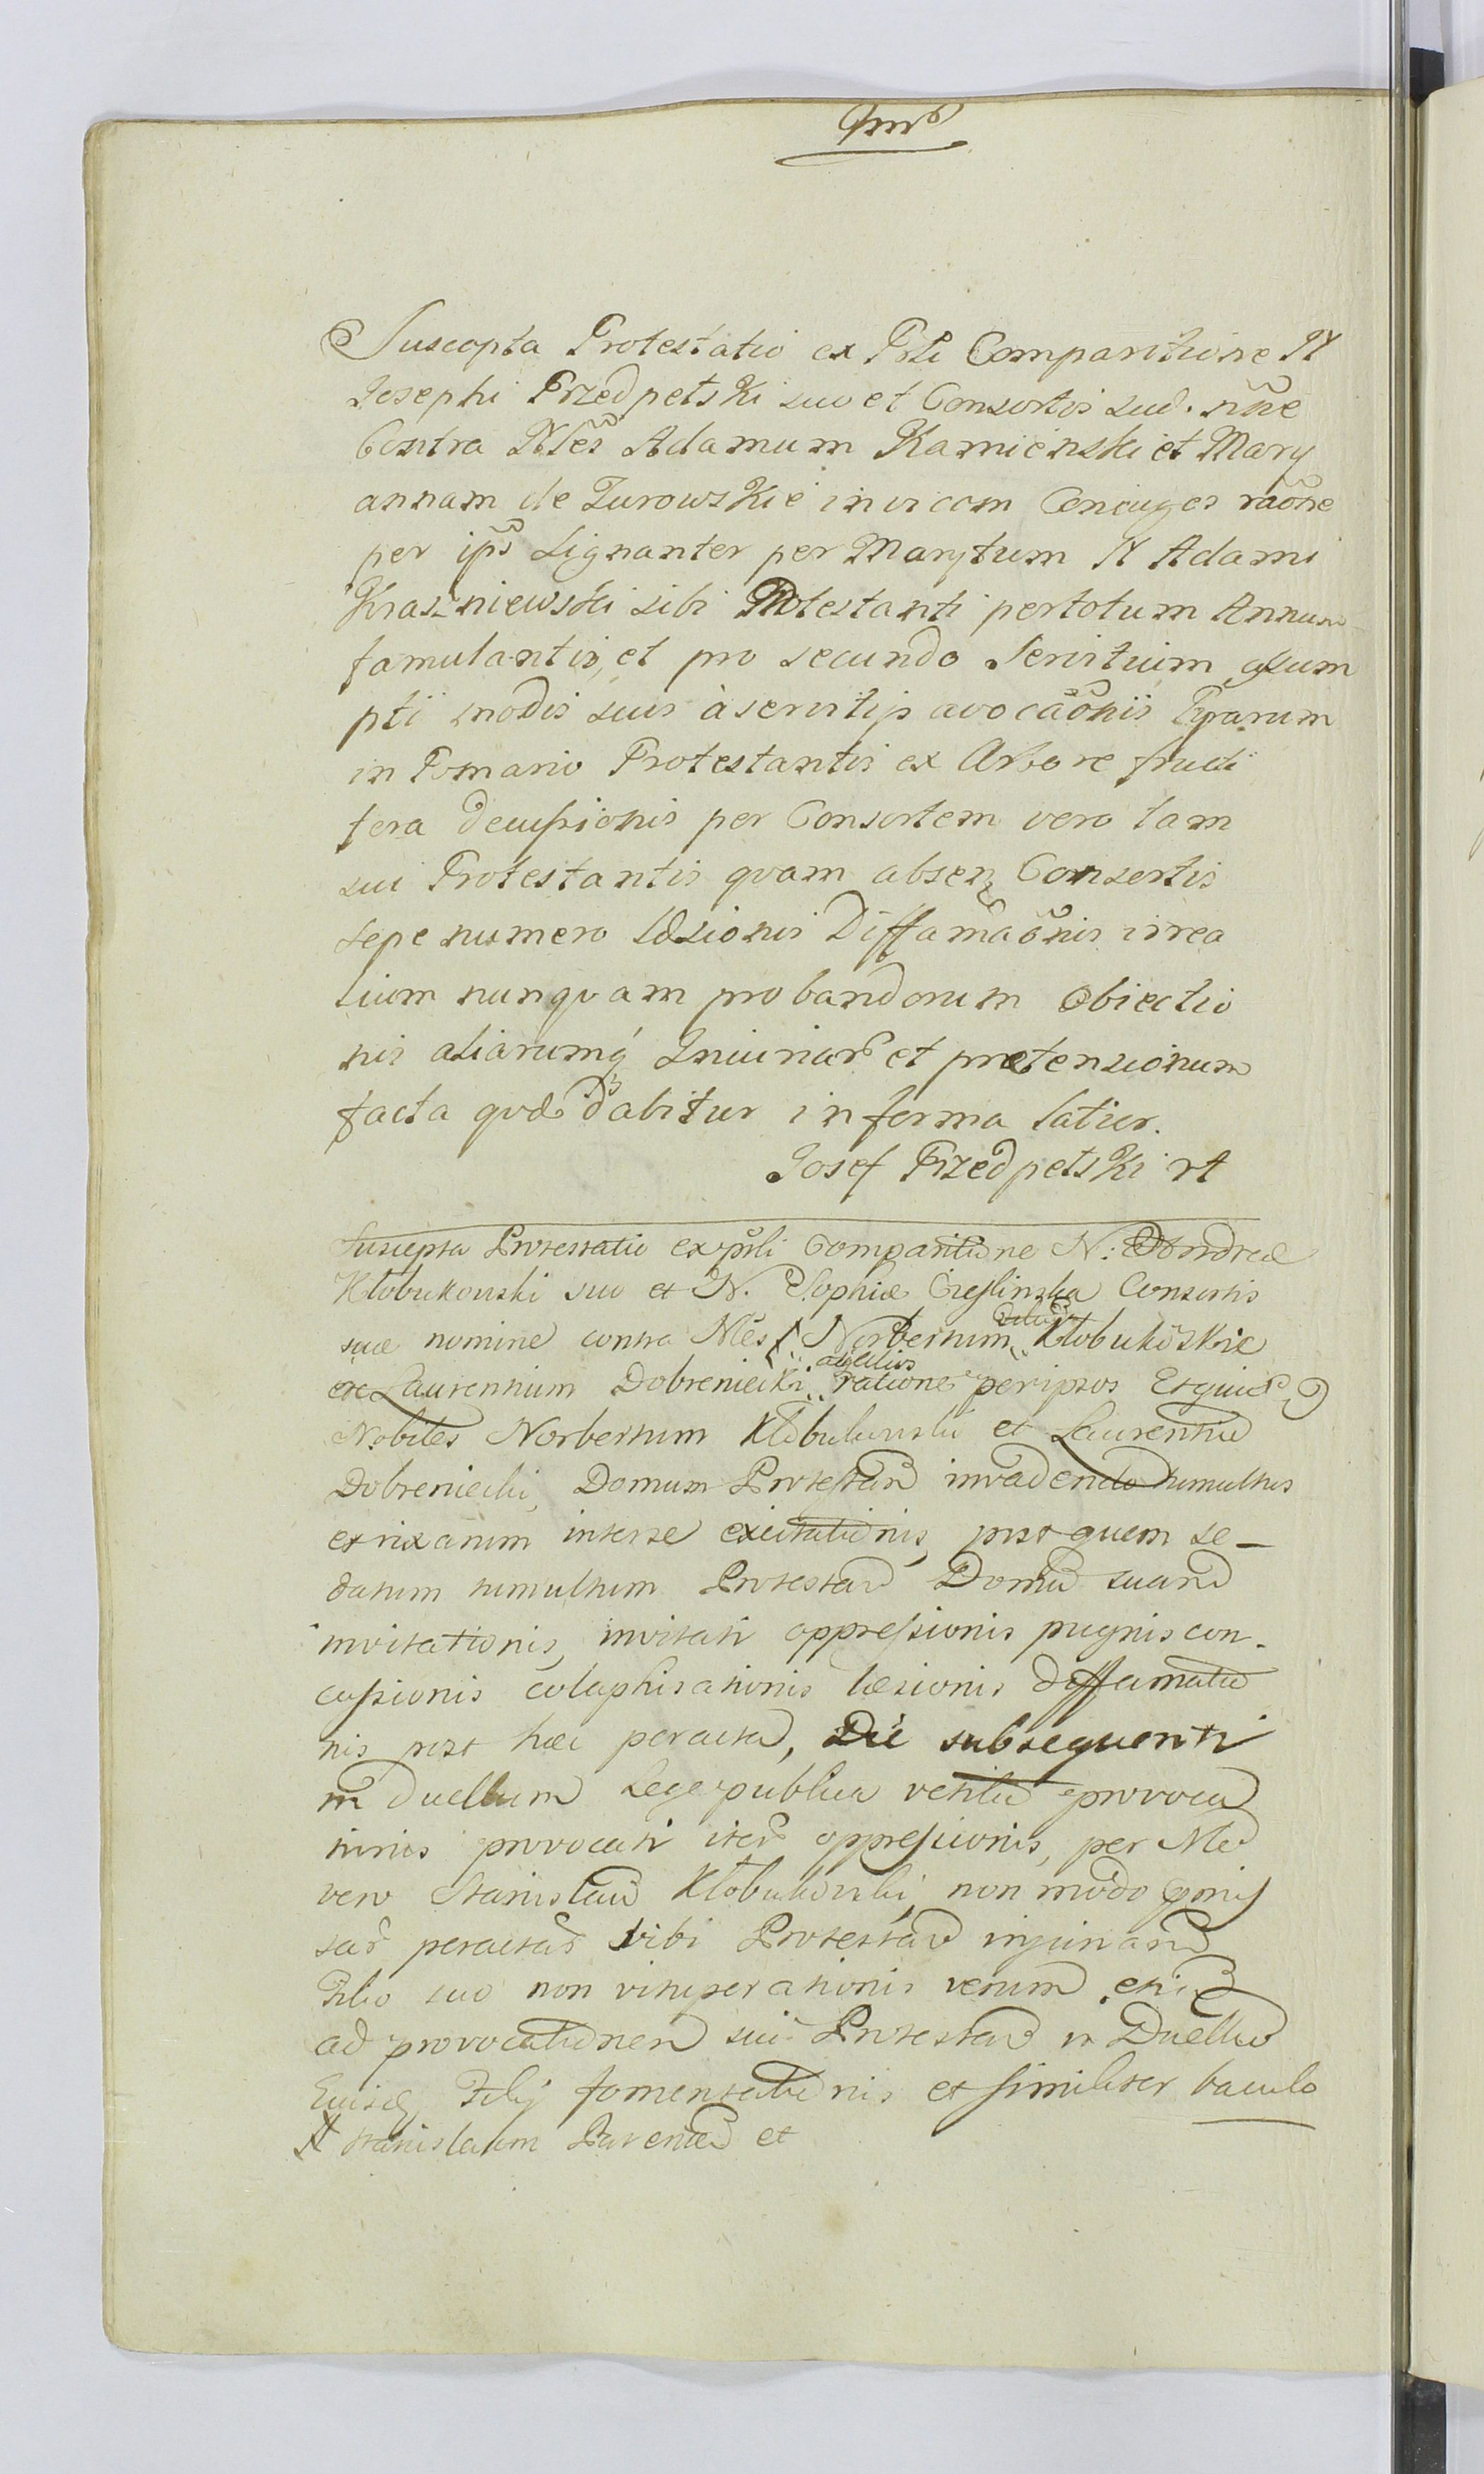 Suscepta Protestatio ex Psli Comparitione N
Josephi Przedpełski suo et Consortis suæ nñe
Contra Nles Adamum Kamieński et Mary
annam de Turowskie invicem Coniuges raõne
per ipsõs signanter per Marytum N Adami
Kraszniewski sibi Protestanti pertotum Annum
famulantis, et pro secundo Servitium assum
pti modis suis à servitijs avocaõnis Pyrarum
in Pomario Protestantis ex Arbore fructi
fera decussionis per Consortem vero tam
sui Protestantis quam absen Consortis
sepe numero læsionis Diffamaõnis irrea
lium nunquam probandorum obiectio
nis aliarumq́ Iniuriar et prætensionum
facta quæ dabitur in forma latior.
Josef Przedpełski rt
Suscepta Protestatio ex psli Comparitione N: Andreæ
Kłobukowski suo et N. Sophiæ Cieslinska Consortis
suæ nomine contra Nles Norbertum Kłobukoskie
et Laurentium Dobreniecki ratione per ipsos
Nobiles Norbertum Kłobukowski et Laurentiu
Dobreniecki, Domum Protestan invadendo tumultus
et rixarum inter se excitationis, post quem se-
datum tumultum Protestan Domu suam
invitationis, invitati oppressionis pugnis con-
cussionis colaphisationis læsionis diffamatio
nis post hæc peracta, Die subsequenti
in duellum Lege publica vetitu provoca
tionis provocati iter oppressionis, per Nle
vero Stanislau Kłobukowski non modo
sar peractar sibi Protestan injuriar
Filio suo non vituperationis verum etia
ad provocationem sui Protestan in Duellu
Eiusq Filij fomentationis et similiter baculo
N Stanislaum Parente et